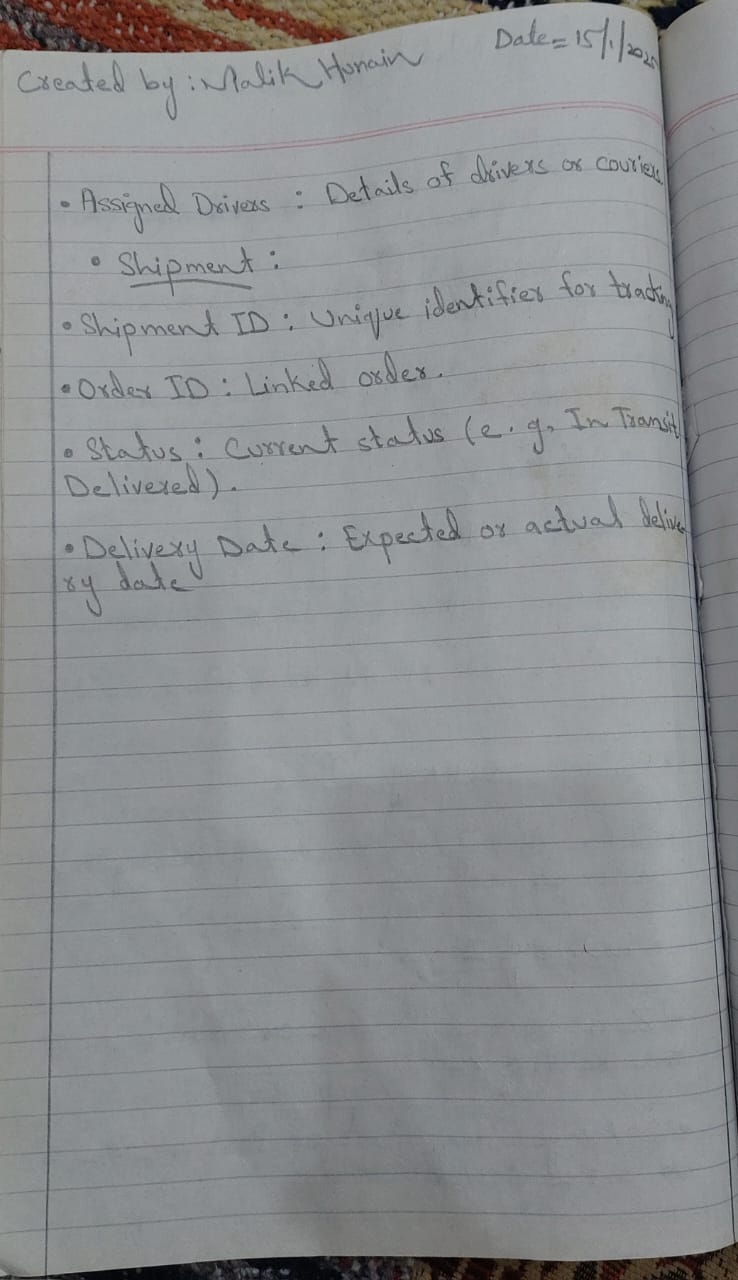 Created by : Malik Hunain
Date = 15/1/2025
• Assigned Drivers : Details of drivers or couriers
• Shipment :
• Shipment ID : Unique identifier for tracking
• Order ID : Linked order.
• Status : Current status (e.g, In Transit
Delivered).
• Delivery Date : Expected or actual delive
ry date